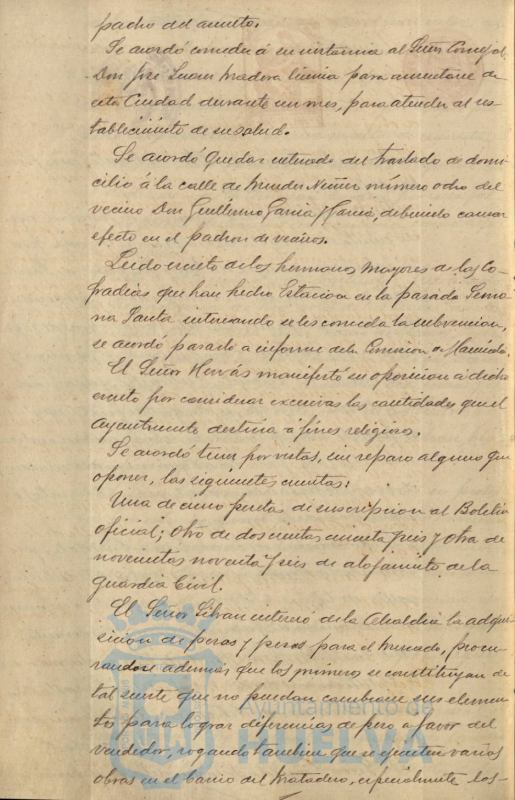 padro del asunto.
Se acordó conceder á su instancia al Señor Concejal
Don José Suarez Madera licencia para ausentarse de
esta Ciudad durante un mes, para atender al res-
tablecimiento de su salud.
Se acordó quedar enterado del traslado de domi-
cilio á la calle de Mendez Nuñez número ocho del
vecino Don Guillermo Garcia y Garcia, debiendo causar
efecto en el padron de vecinos.
Leido escrito de los hermanos mayores de las Co-
fradias que han hecho Estacion en la pasada Sema-
na Santa interesando se les conceda la subvencion,
se acordó pasarlo a informe de la Comision de Hacienda.
El Señor Hervás manifestó su oposicion á dicho
escrito por considerar excesivas las cantidades que el
Ayuntamiento destina á fines religiosos.
Se acordó tener por vistas, sin reparo alguno que
oponer, las siguientes cuentas:
Una de cinco pesetas de suscripcion al Boletin
oficial; otro de doscientas cincuenta y seis y otra de
novecientas noventa y seis de alojamiento de la
Guardia Civil.
El Señor interesó de la Alcaldia la adqui-
sicion de pesas y pesos para el Mercado, procu-
randose además, que los primeros se constituyan de
tal suerte que no puedan cambiarse sus elemen-
tos para lograr diferencias de peso a favor del
vendedor, rogando tambien que se ejecuten varias
obras en el barrio del Matadero, especialmente los-
Ayuntamiento de
HUELVA